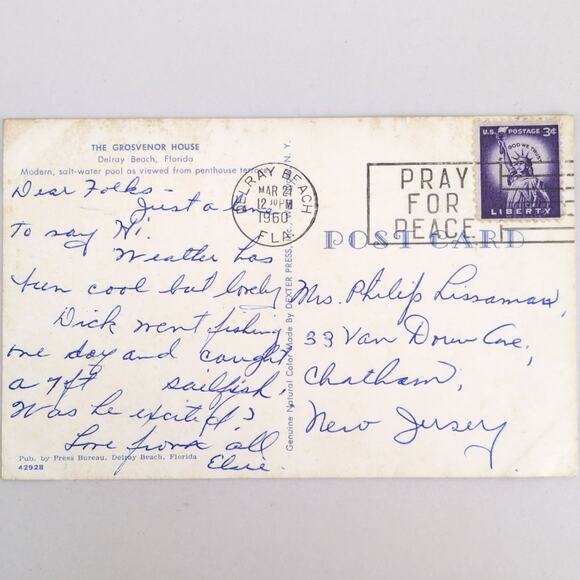 THE GROSVENOR HOUSE
Delray Beach, Florida
Modern, salt-water pool as viewed from penthouse
Dear Folks -
Just a
to say Hi.
Weather has
been cool but lovely
Dick went fishing
one day and caught
a 7ft sailfish,
Was he excited?
Love from all
Elsie.
Pub. by Press Bureau, Delray Beach, Florida
42928
Genuine Natural Color Made By DEXTER PRESS, N. Y.
DELRAY BEACH
MAR 27
12 PM
1960
FLA.
PRAY
FOR
PEACE
U.S. POSTAGE 3¢
IN GOD WE TRUST
LIBERTY
POST CARD
Mrs. Philip
33 Van Ave,
Chatham,
New Jersey